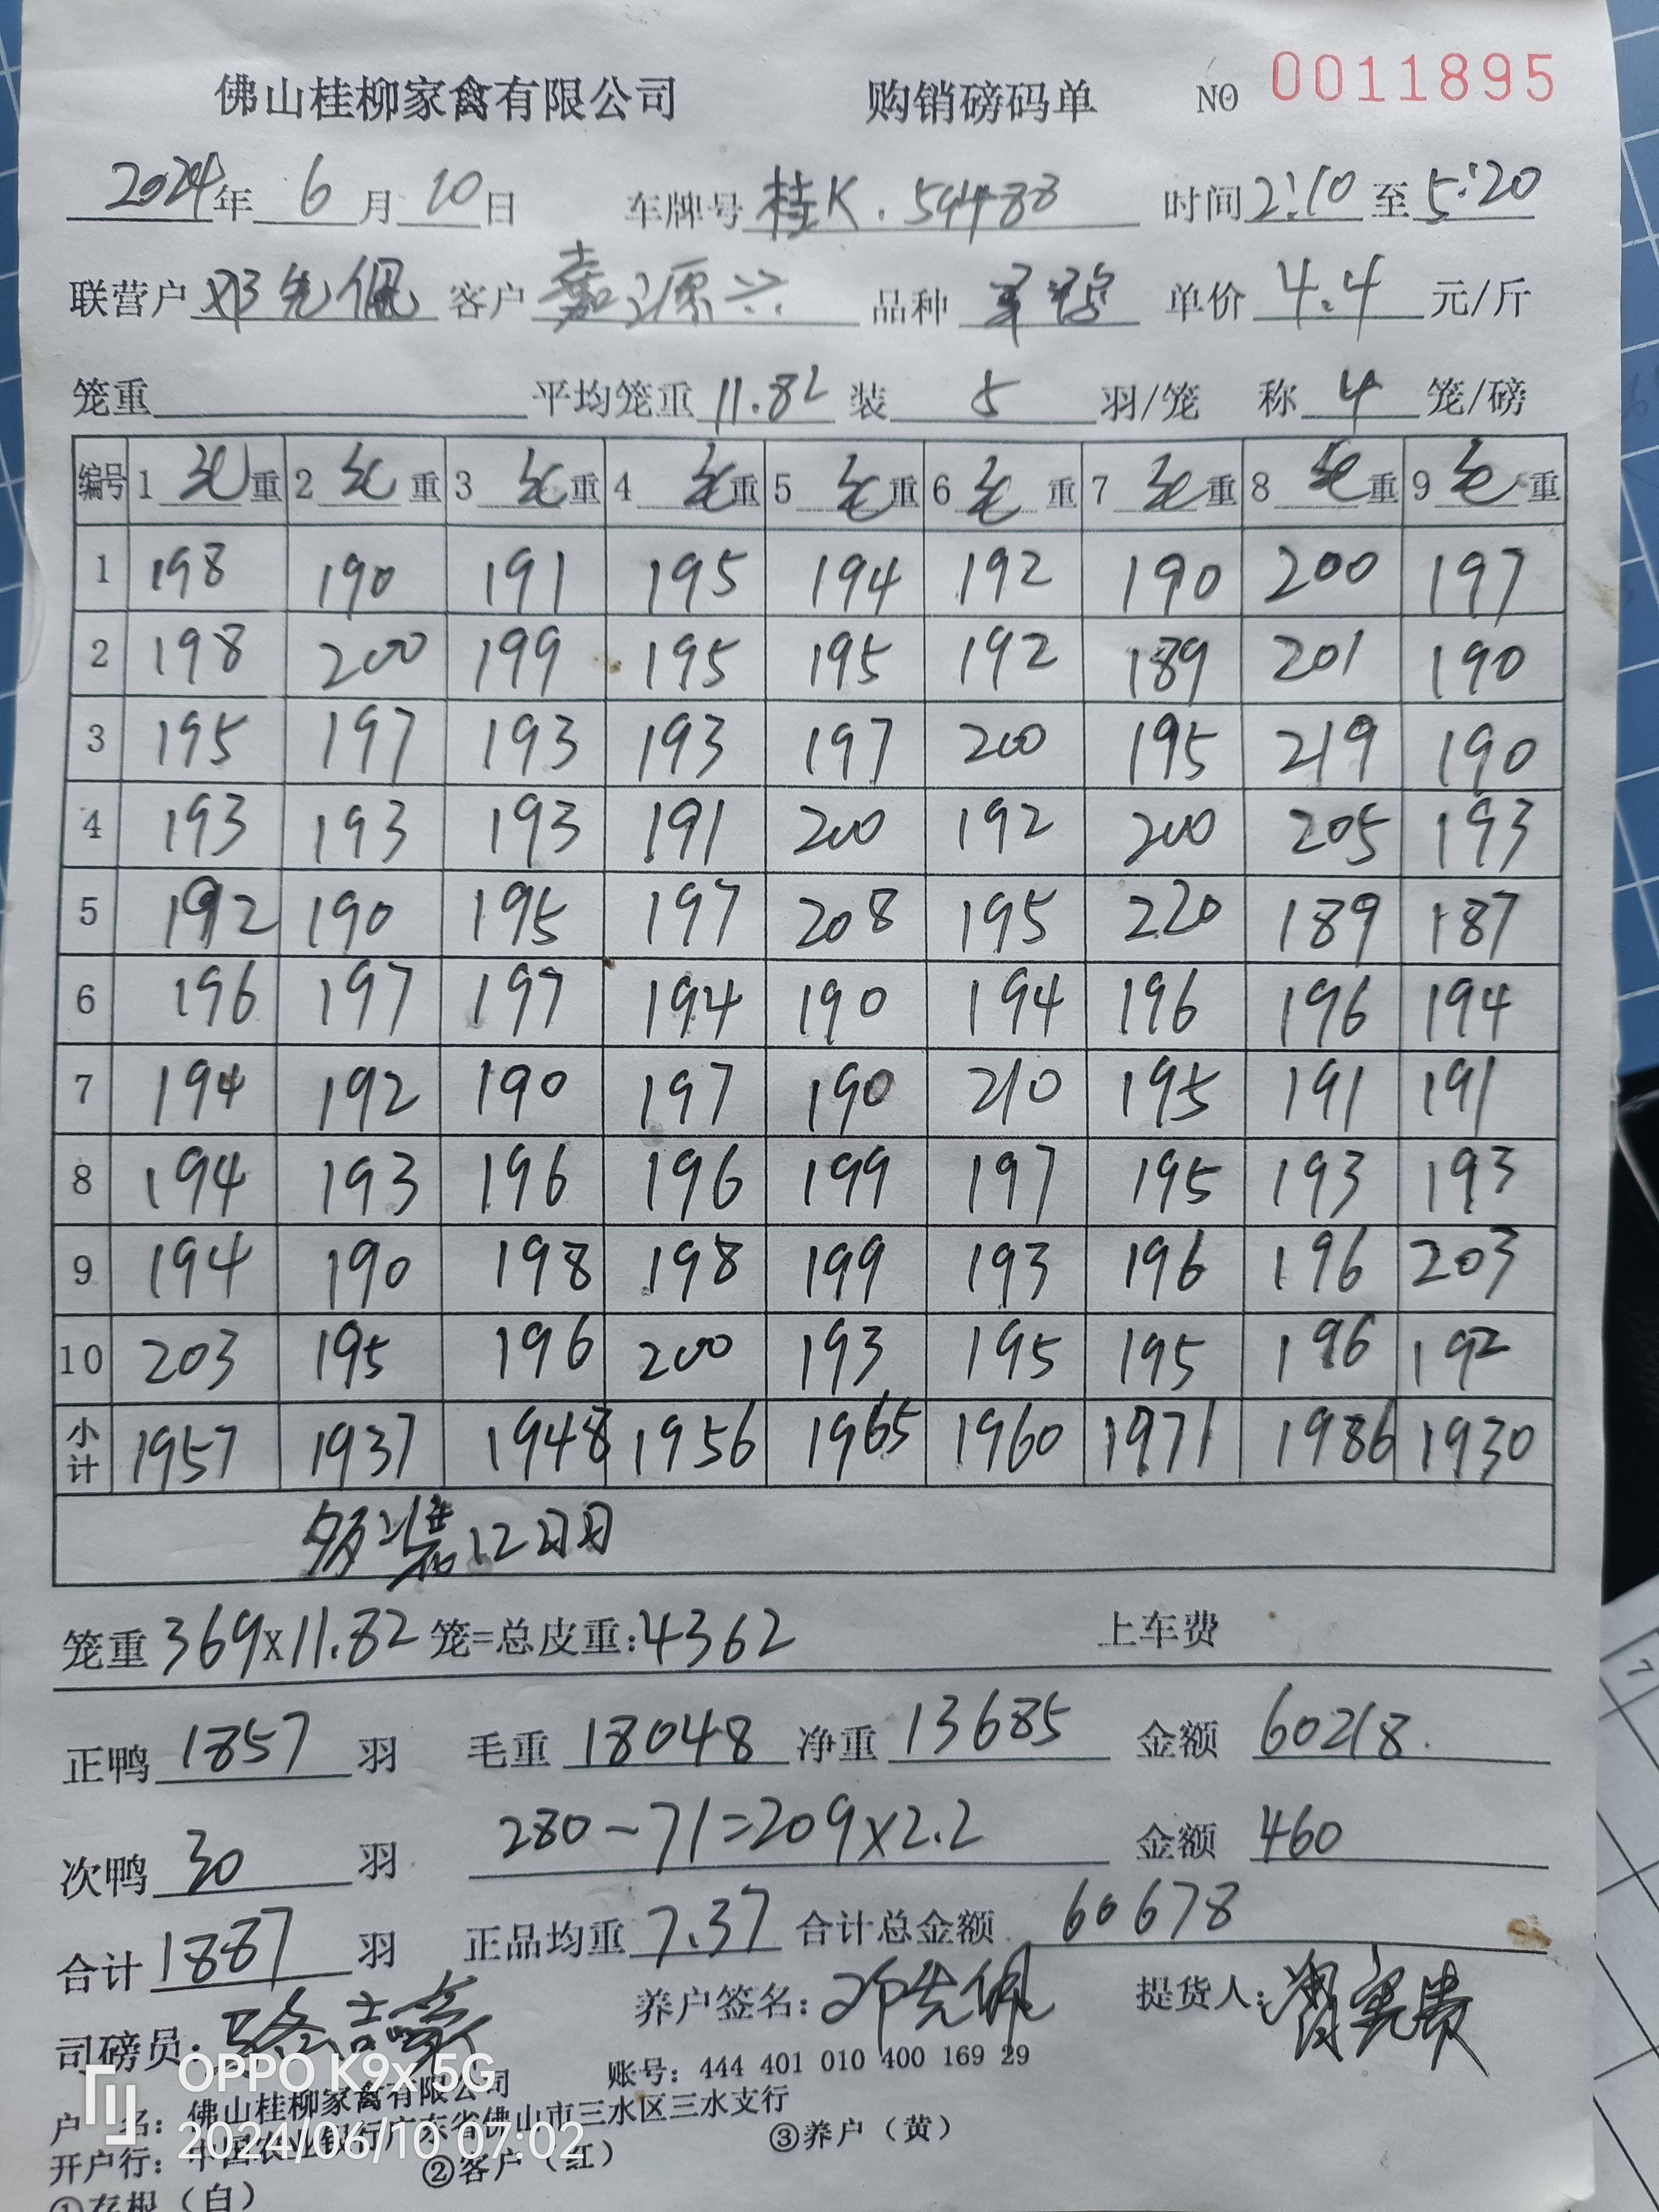 佛山桂柳家禽有限公司 购销磅码单 NO 0011895
2024年 6月 10日 车牌号 桂K.59488 时间 2:10 至 5:20
联营户 邓先佩 客户 嘉源兴 品种 单价 4.4 元/斤
笼重 平均笼重 11.82 装 5 羽/笼 称 4 笼/磅
编号 1 毛重 2 毛重 3 毛重 4 毛重 5 毛重 6 毛重 7 毛重 8 毛重 9 毛重
1 198 190 191 195 194 192 190 200 197
2 198 200 199 195 195 192 189 201 190
3 195 197 193 193 197 200 195 219 190
4 193 193 193 191 200 192 200 205 193
5 192 190 195 197 208 195 220 189 187
6 196 197 197 194 190 194 196 196 194
7 194 192 190 197 190 210 195 191 191
8 194 193 196 196 199 197 195 193 193
9 194 190 198 198 199 193 196 196 203
10 203 195 196 200 193 195 195 196 192
小计 1957 1937 1948 1956 1965 1960 1971 1986 1930
多装12羽
笼重 369x11.82 笼=总皮重:4362 上车费
正鸭 1857 羽 毛重 18048 净重 13685 金额 60218.
次鸭 30 羽 280-71=209x2.2 金额 460
合计 1887 羽 正品均重 7.37 合计总金额 60678
司磅员: 养户签名:邓先佩 提货人:
OPPO K9x 5G
账号: 444 401 010 400 169 29
户 名: 佛山桂柳家禽有限公司
开户行: 中国农业银行广东省佛山市三水区三水支行
2024/06/10 07:02
①存根(白) ②客户(红) ③养户(黄)